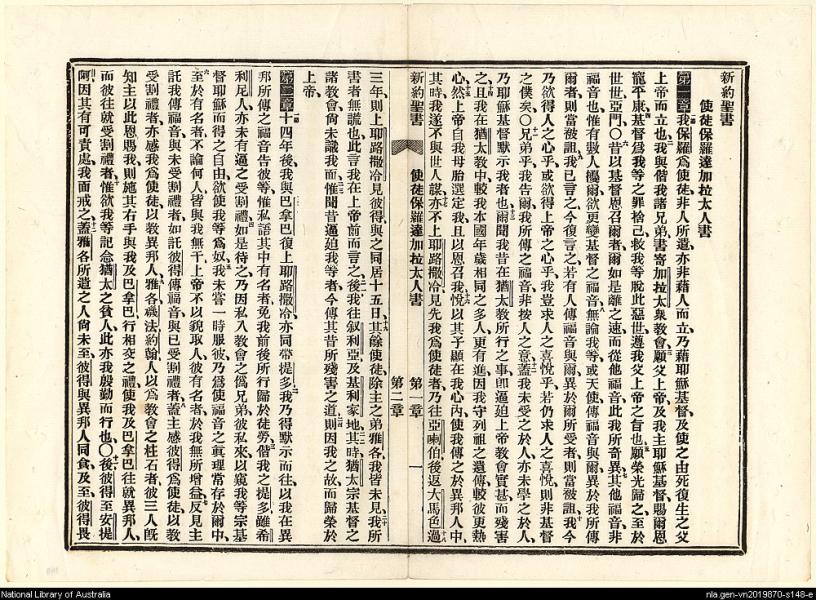 新約聖書
使徒保羅達加拉太人書
第一章我保羅爲使徒、非人所遣、亦非藉人而立、乃藉耶穌基督、及使之由死復生之父
上帝而立也、我與偕我諸兄弟、書寄加拉太衆教會、願父上帝、及我主耶穌基督、賜爾恩
寵平康、基督爲我等之罪捨己、救我等脫此惡世、遵我父上帝之旨也、願榮光歸之、至於
世世、亞門、〇昔以基督恩召爾者、爾如是離之速、而從他福音、此我所奇異、其他福音、非
福音也、惟有數人擾爾、欲更變基督之福音、無論我等、或天使、傳福音與爾、異於我所傳
爾者、則當被詛、我已言之、今復言之、若有人傳福音與爾、異於爾所受者、則當被詛、我今
乃欲得人之心乎、或欲得上帝之心乎、我豈求人之喜悅乎、若仍求人之喜悅、則非基督
之僕矣、〇兄弟乎、我告爾、我所傳之福音、非按人之意、蓋我未受之於人、亦未學之於人、
乃耶穌基督默示我者也、爾聞我昔在猶太教所行之事、卽逼迫上帝教會實甚、而殘害
之、且我在猶太教中、較我本國年歲相同之多人更有進、因我守列祖之遺傳、較彼更熱
心、然上帝自我母胎選定我、且以恩召我、悅以其子顯在我心內、使我傳之於異邦人中、
其時我遂不與世人謀、亦不上耶路撒冷、見先我爲使徒者、乃往亞喇伯、後返大馬色、過
新約聖書 使徒保羅達加拉太人書 第一章 一
第二章
三年、則上耶路撒冷見彼得、與之同居十五日、其餘使徒、除主之弟雅各、我皆未見、我所
書者無謊也、此言我在上帝前而言之、後我往叙利亞及基利家地、其時猶太宗基督之
諸教會、尙未識我面、惟聞昔逼迫我等者、今傳其昔所殘害之道、則因我之故、而歸榮於
上帝、
第二章十四年後、我與巴拿巴復上耶路撒冷、亦同帶提多、我乃得默示而往、以我在異
邦所傳之福音告彼等、惟私語其中有名者、免我前後所行歸於徒勞、偕我之提多雖希
利尼人、亦未有逼之受割禮、如是待之、乃因私入教會之僞兄弟、彼私來以窺我等宗基
督耶穌而得之自由、欲使我等爲奴、我未嘗一時服彼、乃爲使福音之眞理常存於爾中、
至於有名者、不論何人、皆與我無干、上帝不以貌取人、彼有名者、於我無所增益、反見主
託我傳福音與未受割禮者、如託彼得傳福音與已受割禮者、蓋主感彼得爲使徒、以教
受割禮者、亦感我爲使徒、以教異邦人、雅各、磯法、約翰、人以爲教會之柱石者、彼三人旣
知主以此恩賜我、則施其右手、與我及巴拿巴行相交之禮、使我及巴拿巴往就異邦人、
而彼往就受割禮者、惟欲我等記念猶太之貧人、此亦我殷勤而行也、〇後彼得至安提
阿、因其有可責處、我面戒之、蓋雅各所遣之人尙未至、彼得與異邦人同食、及至、彼得畏
National Library of Australia
nla.gen-vn2019870-s148-e